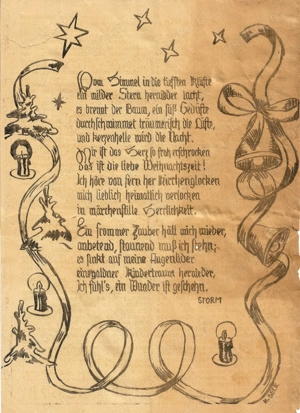 Vom Himmel in die tiefsten Klüfte
ein milder Stern hernider lacht,
es brennt der Baum, ein süß Gedüfte
durchschwimmet träumerisch die Lüfte,
und kerzenhelle wird die Nacht.
Mir ist das Herz so froh erschrocken
das ist die liebe Weihnachtszeit!
Ich höre von fern her Kirchenglocken
mich lieblich heimatlich verlocken
in märchenstille Herrlichkeit.
Ein frommer Zauber hält mich wieder,
anbetend, staunend muß ich stehn;
es sinkt auf meine Augenlider
ein goldner Kindertraum hernieder,
Ich fühl's, ein Wunder ist geschehn.
STORM